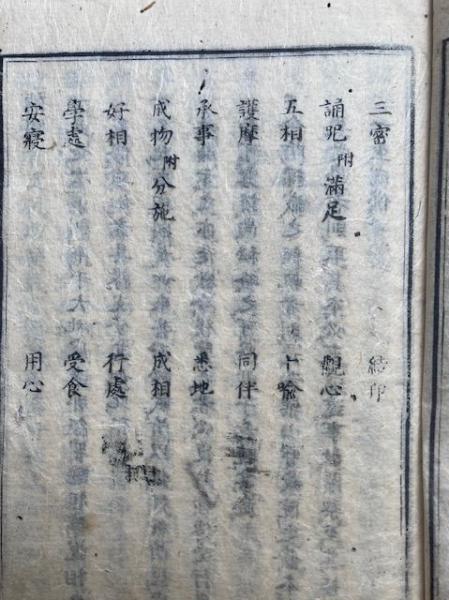 三密 結印
誦呪附滿足 觀心
五相 十喻
護摩 同伴
承事 悉地
成物附分施 成相
好相 行處
學處 受食
安寢 用心